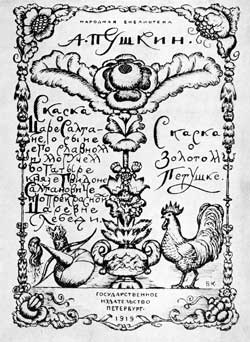 НАРОДНАЯ БИБЛИОТЕКА
А. ПУШКИН.
Сказка
о
Царе Салта-
не, о сыне
его славном
и могучем
богатыре
князе Гвидоне
Салтановиче
и о прекрасной
Царевне
Лебеди.
Сказка
о
Золотом
Петушке.
БК
ГОСУДАРСТВЕННОЕ
ИЗДАТЕЛЬСТВО
ПЕТЕРБУРГ.
1919